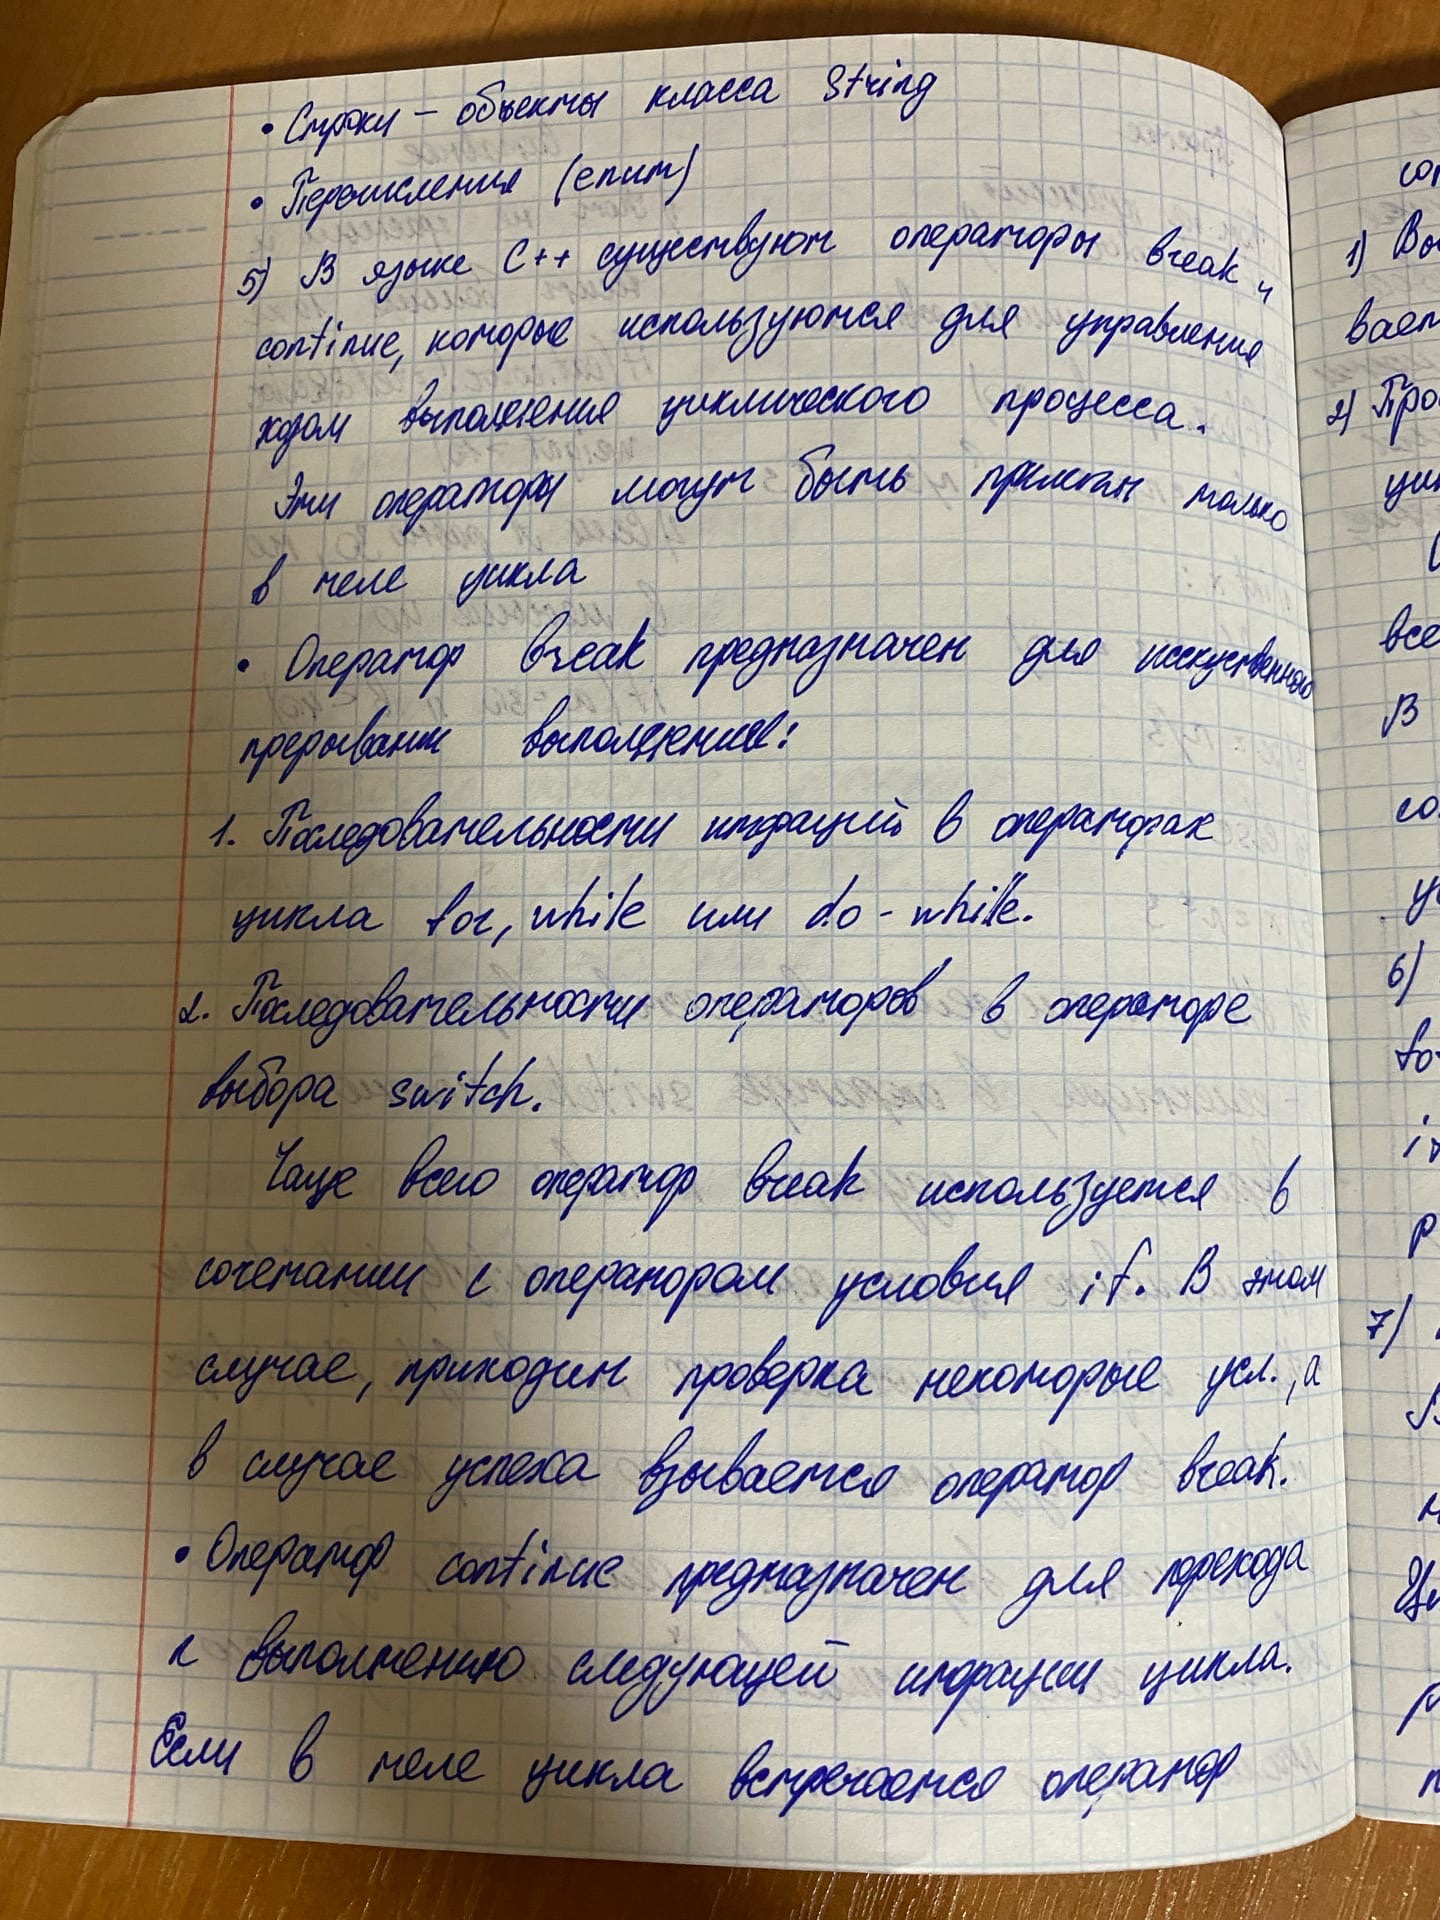 • Строки – объекты класса String
• Перечисления (enum)
5) В языке C++ существуют операторы break и
continue, которые используются для управления
ходом выполнения циклического процесса.
Эти операторы могут быть только
в теле цикла
• Оператор break предназначен для исскуственного
прерывания выполнения:
1. Последовательности итераций в операторах
цикла for, while или do-while.
2. Последовательности операторов в операторе
выбора switch.
Чаще всего оператор break используется в
сочетании с оператором условия if. В этом
случае, проверка некоторые усл., а
в случае успеха взывается оператор break.
• Оператор continue предназначен для перехода
к выполнению следующей итерации цикла.
Если в теле цикла встречается оператор
со
1) Вы
вает
2) Про
цик
все
В
со
ус
6)
fo
7)